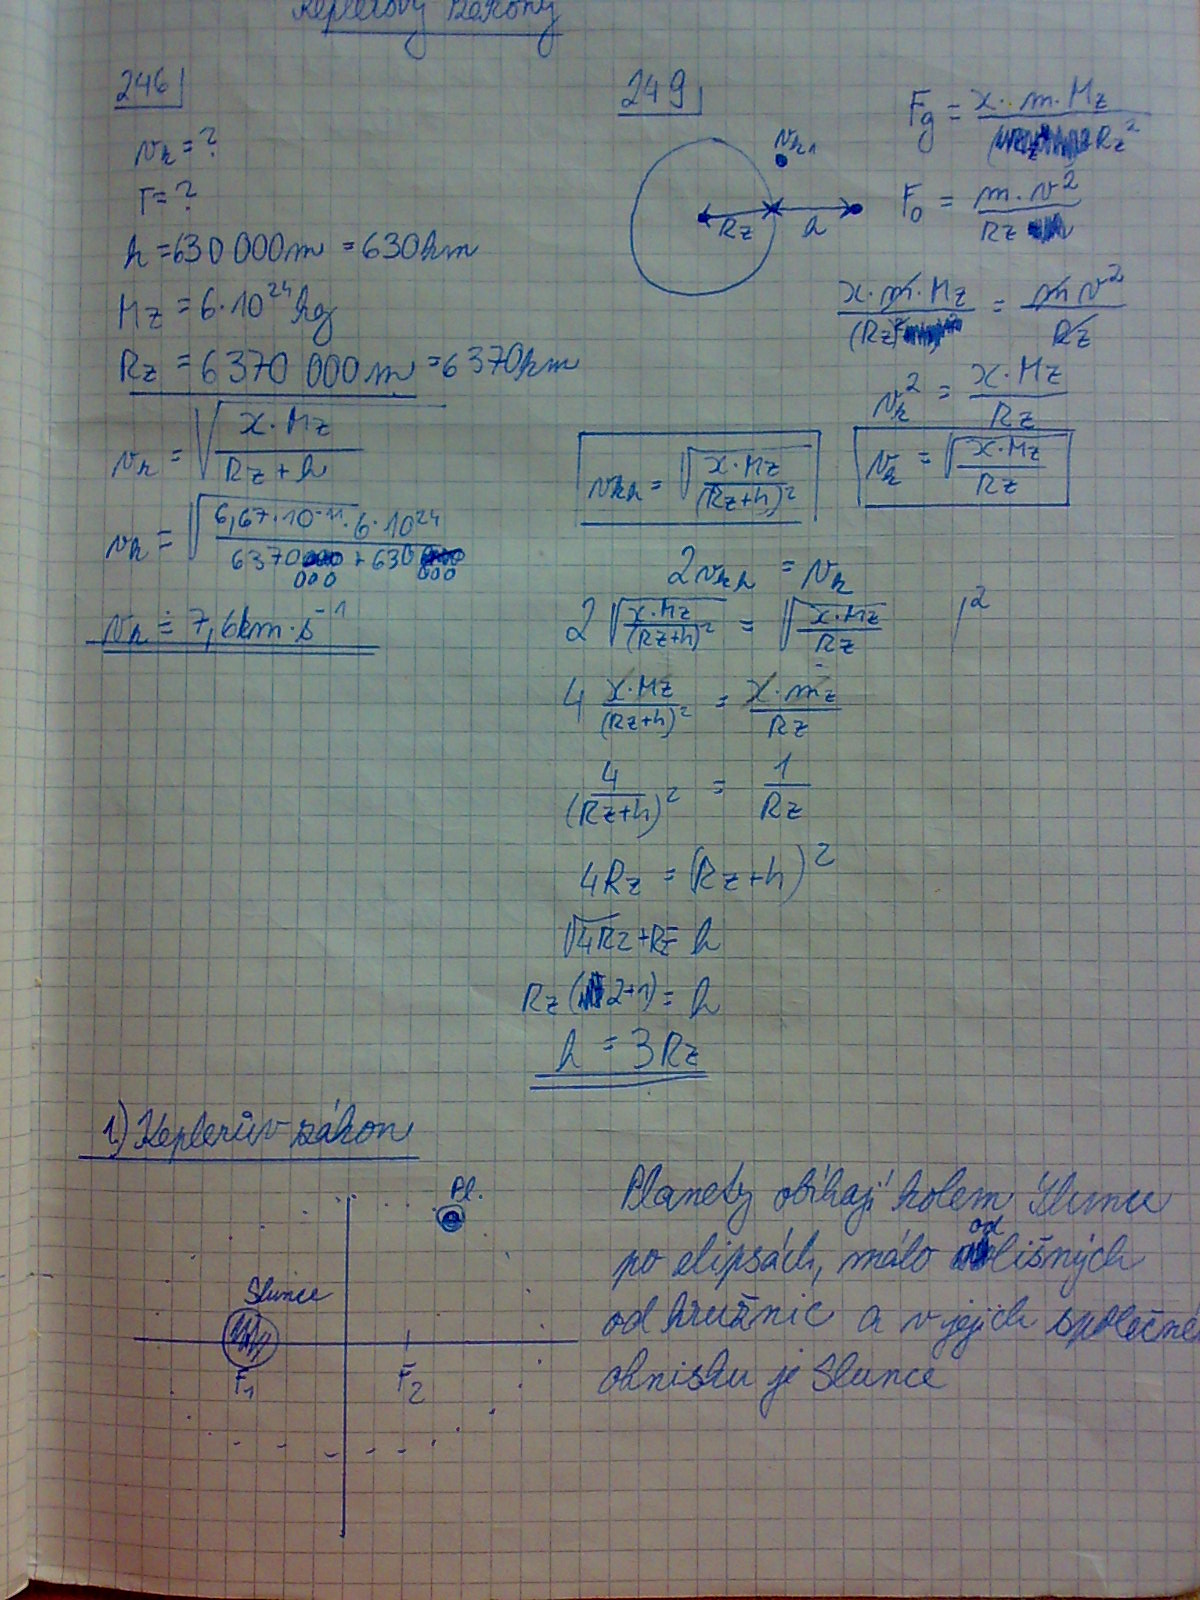 Keplerovy zákony
246
v_k = ?
T = ?
h = 630 000m = 630km
Mz = 6·10^24 kg
Rz = 6370 000m = 6370km
v_k = √(x·Mz / Rz + h)
v_k = √(6,67·10^-11·6·10^24 / 6370 000 + 630 000)
v_k ≐ 7,6km·s^-1
249
v_k1
Rz h
Fg = x·m·Mz / Rz^2
Fo = m·v^2 / Rz
x·m·Mz / (Rz)^2 = m v^2 / Rz
v_k^2 = x·Mz / Rz
v_k = √(x·Mz / Rz)
v_kh = √(x·Mz / (Rz+h)^2)
2v_kh = v_k
2√(x·Mz / (Rz+h)^2) = √(x·Mz / Rz) /^2
4 x·Mz / (Rz+h)^2 = x·mz / Rz
4 / (Rz+h)^2 = 1 / Rz
4Rz = (Rz+h)^2
√4Rz + Rz = h
Rz (2+1) = h
h = 3Rz
1) Keplerův zákon
Pl.
Slunce
F1 F2
Planety obíhají kolem Slunce
po elipsách, málo odlišných
od kružnic a v jejich společné
ohnisku je Slunce